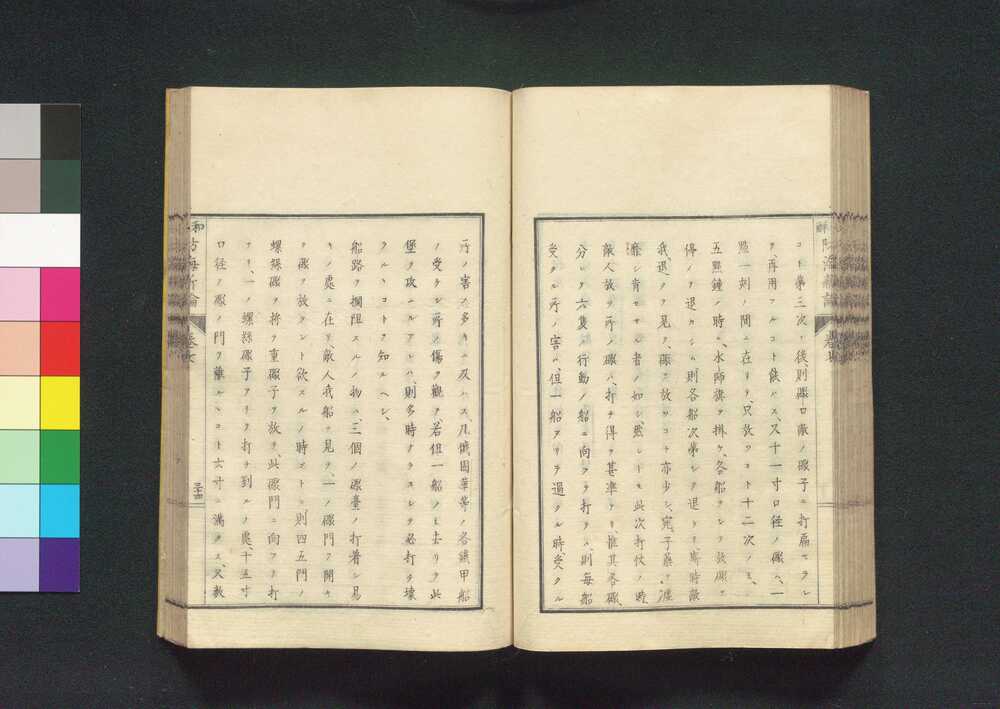 コト第三次ノ後、則礮口敵ノ礮子ニ打扁セラレ
ヲ、再用フルコト能ハス、又十一寸口径ノ礮ハ、一
點一刻ノ間ニ在リテ、只放ツコト十二次ノミ、
五點鐘ノ時ニ、水師旗ヲ掛ケ、各船ヲシテ放礮ヲ
停メテ退カシム、則各船次第シテ退ク、
我退クヲ見テ、礮ヲ放ツコト亦少シ、宛子
靡シ肯セサル者ノ如シ、然レトモ此次打仗ノ時、
敵人放ツ所ノ礮ハ、打チ得テ甚準ナリ、惟其各礮、
分レテ六隻ノ行動ノ船ニ向フテ打テハ、則毎船
受クル所ノ害ハ、但一船ヲ過クル時、受クル
所ノ害ノ多キニ及ハス、凡機固華等ノ各鐵甲船
ノ受クシ所ノ傷ヲ觀テ、若但一船ノミ去リテ此
堡ヲ攻ムルアレハ、則多時ナラスシテ必打チ壊
クルヽコトヲ知ルヘシ、
船路ヲ攔阻スルノ物ハ、三個ノ礮臺ノ打着シ易
キノ處ニ在リ、敵人我船ヲ見テ、一ノ礮門ヲ開キ
テ礮ヲ放タント欲スルノ時ニ、則四五門ノ
螺絲礮ヲ將テ重礮子ヲ放チ、此礮門ニ向フテ打
ツ、一ノ螺絲礮子アリテ打チ到ルノ處、十五寸
口径ノ礮ノ門ヲ離ルヽコト六寸ニ満タス、又数
巻
三十四